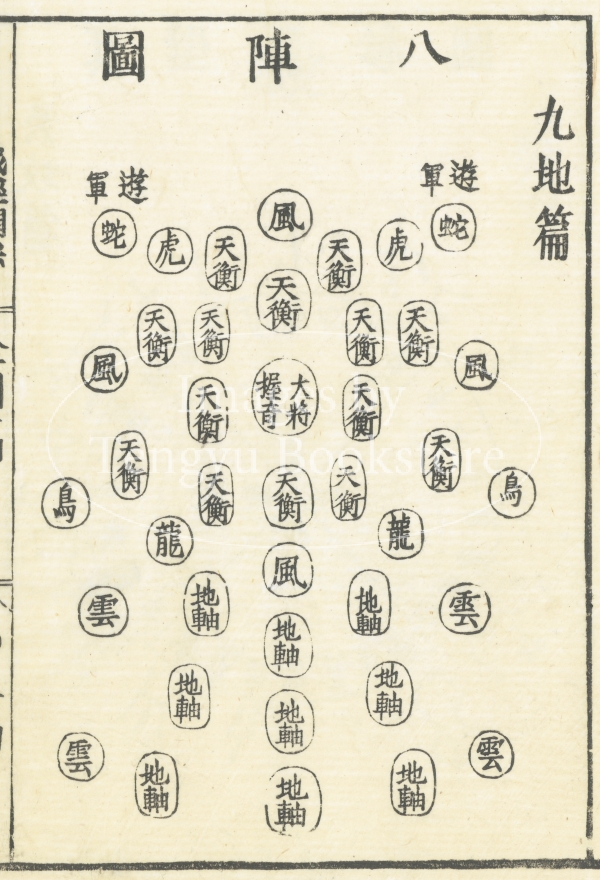 八陣圖
九地篇
遊軍
遊軍
風
蛇
虎
天衡
天衡
虎
蛇
天衡
天衡
天衡
天衡
天衡
風
風
大將
握奇
天衡
天衡
天衡
天衡
鳥
鳥
天衡
天衡
天衡
龍
龍
風
雲
地軸
地軸
雲
地軸
地軸
地軸
地軸
雲
地軸
地軸
地軸
雲
Images by
Tengyu Bookstore